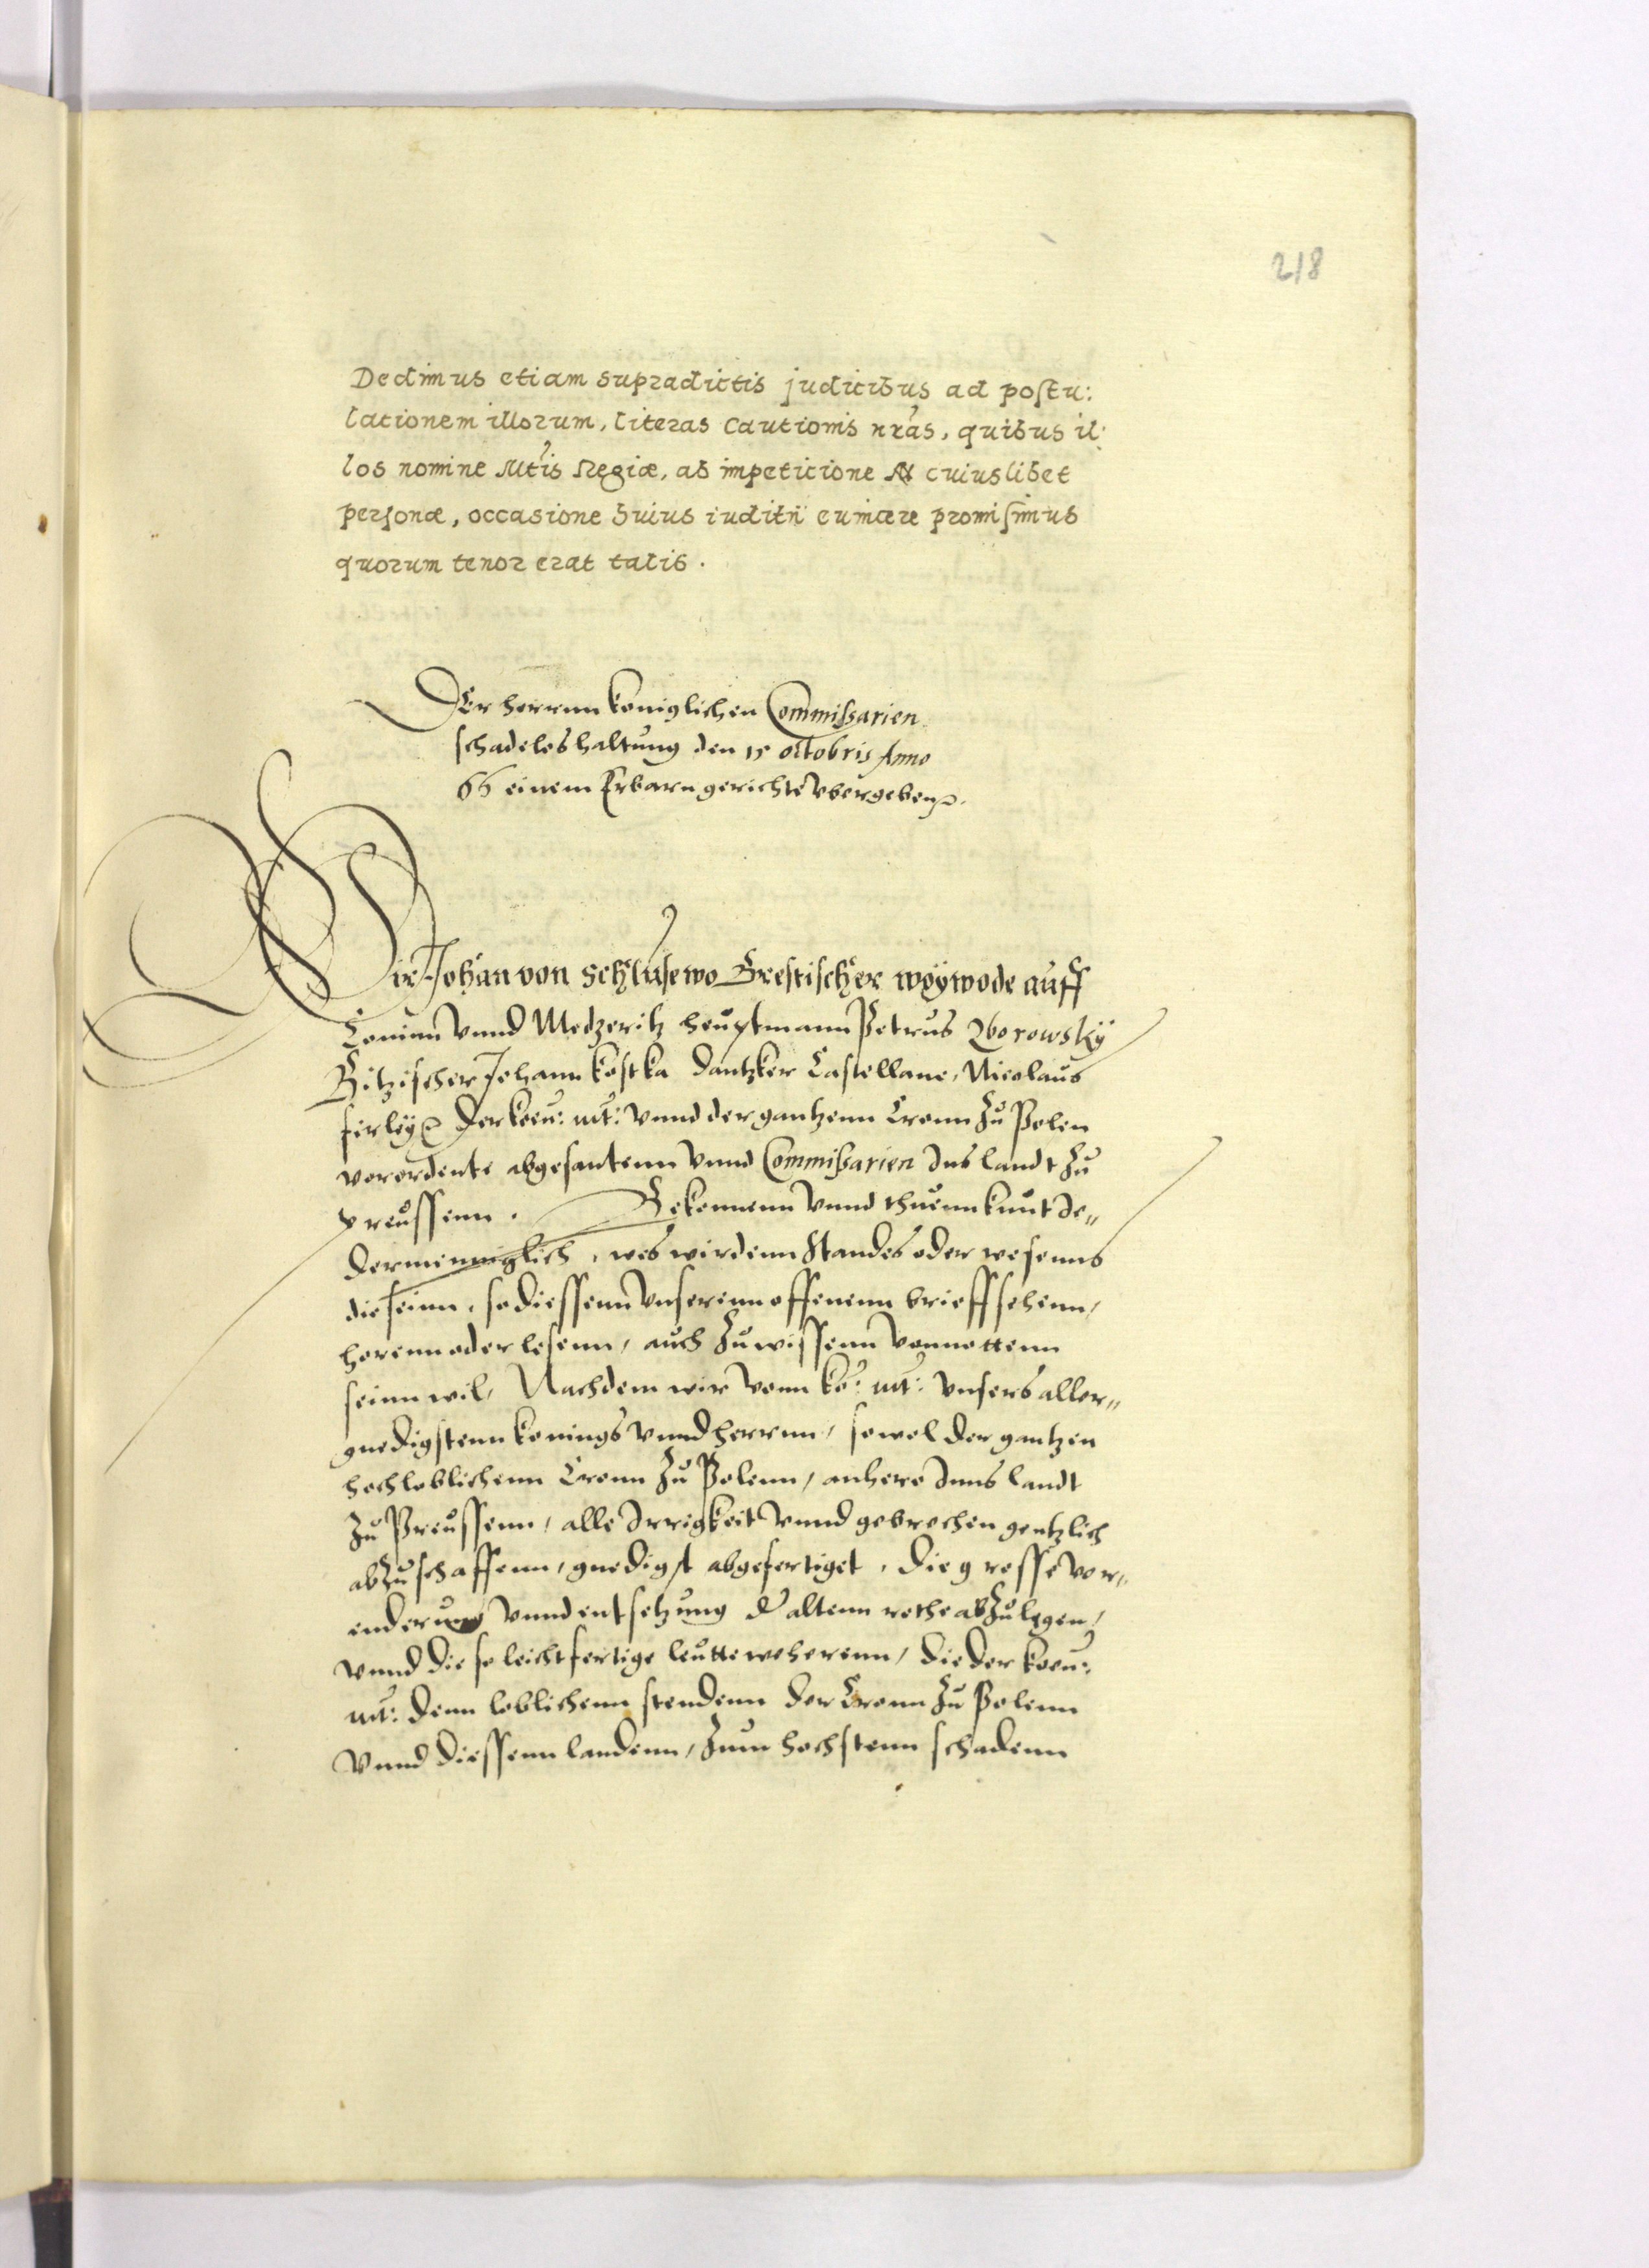 218
Dedimus etiam supradictis judicibus ad postu:
lationem illorum, literas cautionis nr̃as, quibus il:
los nomine Mt̃is Regiæ, ab impeticione cuiuslibet
personæ, occasione huius iuditii euincere promisimus
quorum tenor erat talis.
Der herrnn koniglichen Commissarien
schadeloshaltung den 15 octobris Anno
66 einem Erbarn gerichte vbergeben
Wir Johan von Schlusewo Brestischer woÿwode auff
Coninn vnnd Medzeritz heuptmann Petrus Zborowskÿ
Bitzischer Johann kostka dantzker Castellane, Nicolaus
firleÿ der koen: mt: vnnd der gantzenn Cronn zu Polen
verordente abgesantenn vnnd Commissarien Ins landt zu
preussenn. Bekennenn vnnd thuenn kunt Je„
dermenniglich, wes wirdenn standes oder wesenns
die seinn, so diessenn vnserenn offenenn brieff sehenn,
horenn oder lesenn, auch zu wissenn vonnottenn
seinn wil, Nachdem wir vonn ko: mt: vnsers aller„
gnedigstenn konings vnnd herrnn, sowol der gantzen
hochloblichenn Cronn zu Polenn, anhero Inns landt
zu Preussenn, alle Irrigkeit vnnd gebrechen gentzlich
abzuschaffenn, gnedigst abgefertiget, die grosse vor„
enderung vnnd entsetzung d' altenn rethe abzulegen,
vnnd die so leichtfertige leutte weherenn, die der koen:
mt: denn loblichenn stendenn der Cronn zu Polenn
vnnd diessenn landenn, zum hochstenn schadenn